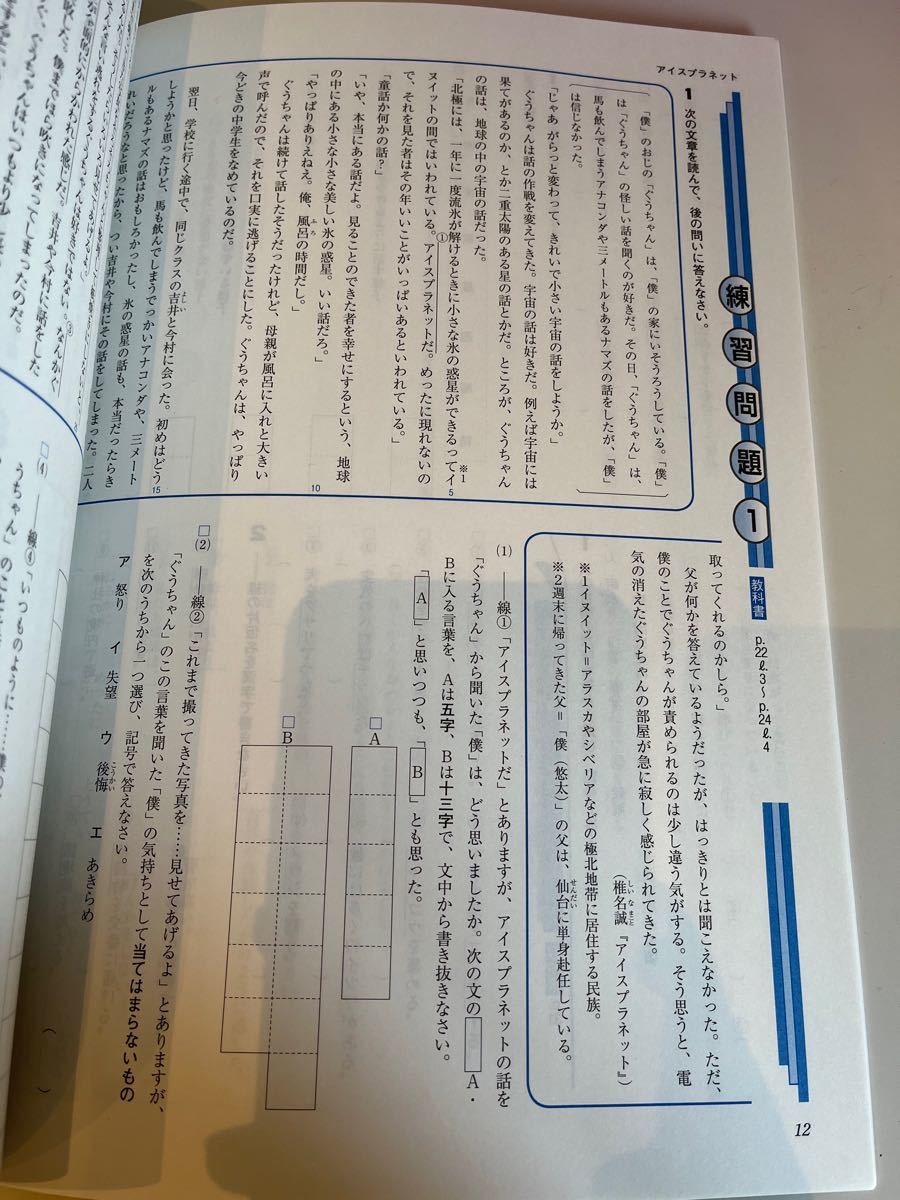 アイスプラネット
練習問題 1
教科書 p.22 ℓ.3～p.24 ℓ.4
1 次の文章を読んで、後の問いに答えなさい。
「僕」のおじの「ぐうちゃん」は、「僕」の家にいそうろうしている。「僕」
は「ぐうちゃん」の怪しい話を聞くのが好きだ。その日、「ぐうちゃん」は、
馬も飲んでしまうアナコンダや三メートルもあるナマズの話をしたが、「僕」
は信じなかった。
「じゃあ がらっと変わって、きれいで小さい宇宙の話をしようか。」
ぐうちゃんは話の作戦を変えてきた。宇宙の話は好きだ。例えば宇宙には
果てがあるのか、とか二重太陽のある星の話とかだ。ところが、ぐうちゃん
の話は、地球の中の宇宙の話だった。
「北極には、一年に一度流氷が解けるときに小さな氷の惑星ができるって※1イ 5
ヌイットの間ではいわれている。①アイスプラネットだ。めったに現れないの
で、それを見た者はその年いいことがいっぱいあるといわれている。」
「童話か何かの話？」
「いや、本当にある話だよ。見ることのできた者を幸せにするという、地球
の中にある小さな小さな美しい氷の惑星。いい話だろ。」 10
「やっぱりありえねえ。俺、風呂の時間だし。」
ろ
ぐうちゃんは続けて話したそうだったけれど、母親が風呂に入れと大きい
声で呼んだので、それを口実に逃げることにした。ぐうちゃんは、やっぱり
今どきの中学生をなめているのだ。
翌日、学校に行く途中で、同じクラスの吉井と今村に会った。初めはどう
よしい
しようかと思ったけど、馬も飲んでしまうでっかいアナコンダや、三メート 15
ルもあるナマズの話はおもしろかったし、氷の惑星の話も、本当だったらき
れいだろうなと思ったから、つい吉井や今村にその話をしてしまった。二人
取ってくれるのかしら。」
父が何かを答えているようだったが、はっきりとは聞こえなかった。ただ、
僕のことでぐうちゃんが責められるのは少し違う気がする。そう思うと、電
気の消えたぐうちゃんの部屋が急に寂しく感じられてきた。
（椎名誠『アイスプラネット』）
しいなまこと
※1イヌイット＝アラスカやシベリアなどの極北地帯に居住する民族。
※2週末に帰ってきた父＝「僕（悠太）」の父は、仙台に単身赴任している。
せんだい
(1) ――線①「アイスプラネットだ」とありますが、アイスプラネットの話を
「ぐうちゃん」から聞いた「僕」は、どう思いましたか。次の文の A ・
Bに入る言葉を、Aは五字、Bは十三字で、文中から書き抜きなさい。
「 A 」と思いつつも、「 B 」とも思った。
□A
□B
□(2) ――線②「これまで撮ってきた写真を……見せてあげるよ」とありますが、
「ぐうちゃん」のこの言葉を聞いた「僕」の気持ちとして当てはまらないもの
を次のうちから一つ選び、記号で答えなさい。
ア 怒り イ 失望 ウ 後悔 エ あきらめ
こうかい
（ ）
□(4) ――線④「いつものように……
12